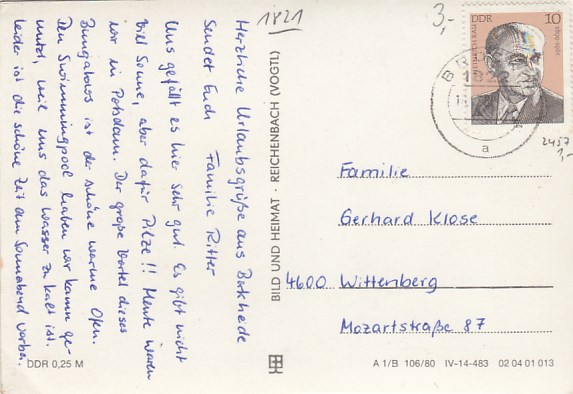 Herzliche Urlaubsgrüße aus Borkheide
Sendet Euch Familie Ritter
Uns gefällt es hier sehr gut. Es gibt nicht
viel Sonne, aber dafür Pilze!! Heute waren
wir in Potsdam. Der große Vorteil dieses
Bungalows ist der schöne warme Ofen.
Den Swimmingpool haben wir kaum ge-
nutzt, weil uns das Wasser zu kalt ist.
Leider ist die schöne Zeit am Sonnabend vorbei.
DDR 0,25 M
1821
BILD UND HEIMAT · REICHENBACH (VOGTL)
3,-
DDR 10
1821
a
2457
1,-
Familie
Gerhard Klose
4600 Wittenberg
Mozartstraße 87
A 1/B 106/80 IV-14-483 02 04 01 013